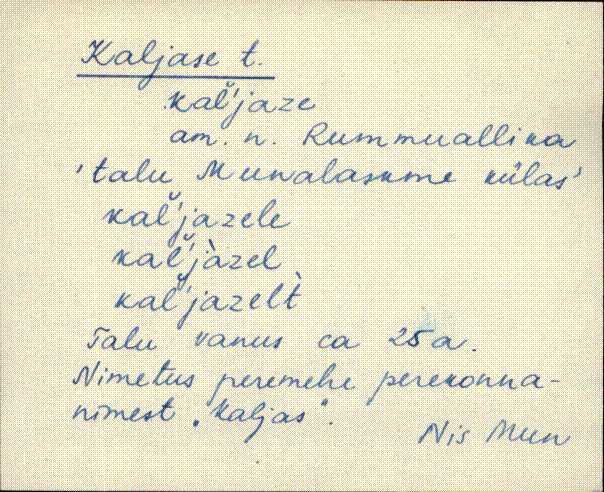 Kaljase t.
kal̆'jaze
am. n. Rummuallika
'talu Munalaskme külas'
kal̆'jazele
kal̆'jàzel
kal̆'jazelt̀
Talu vanus ca 25 a.
Nimetus peremehe perekonna-
nimest „Kaljas".
Nis Mun